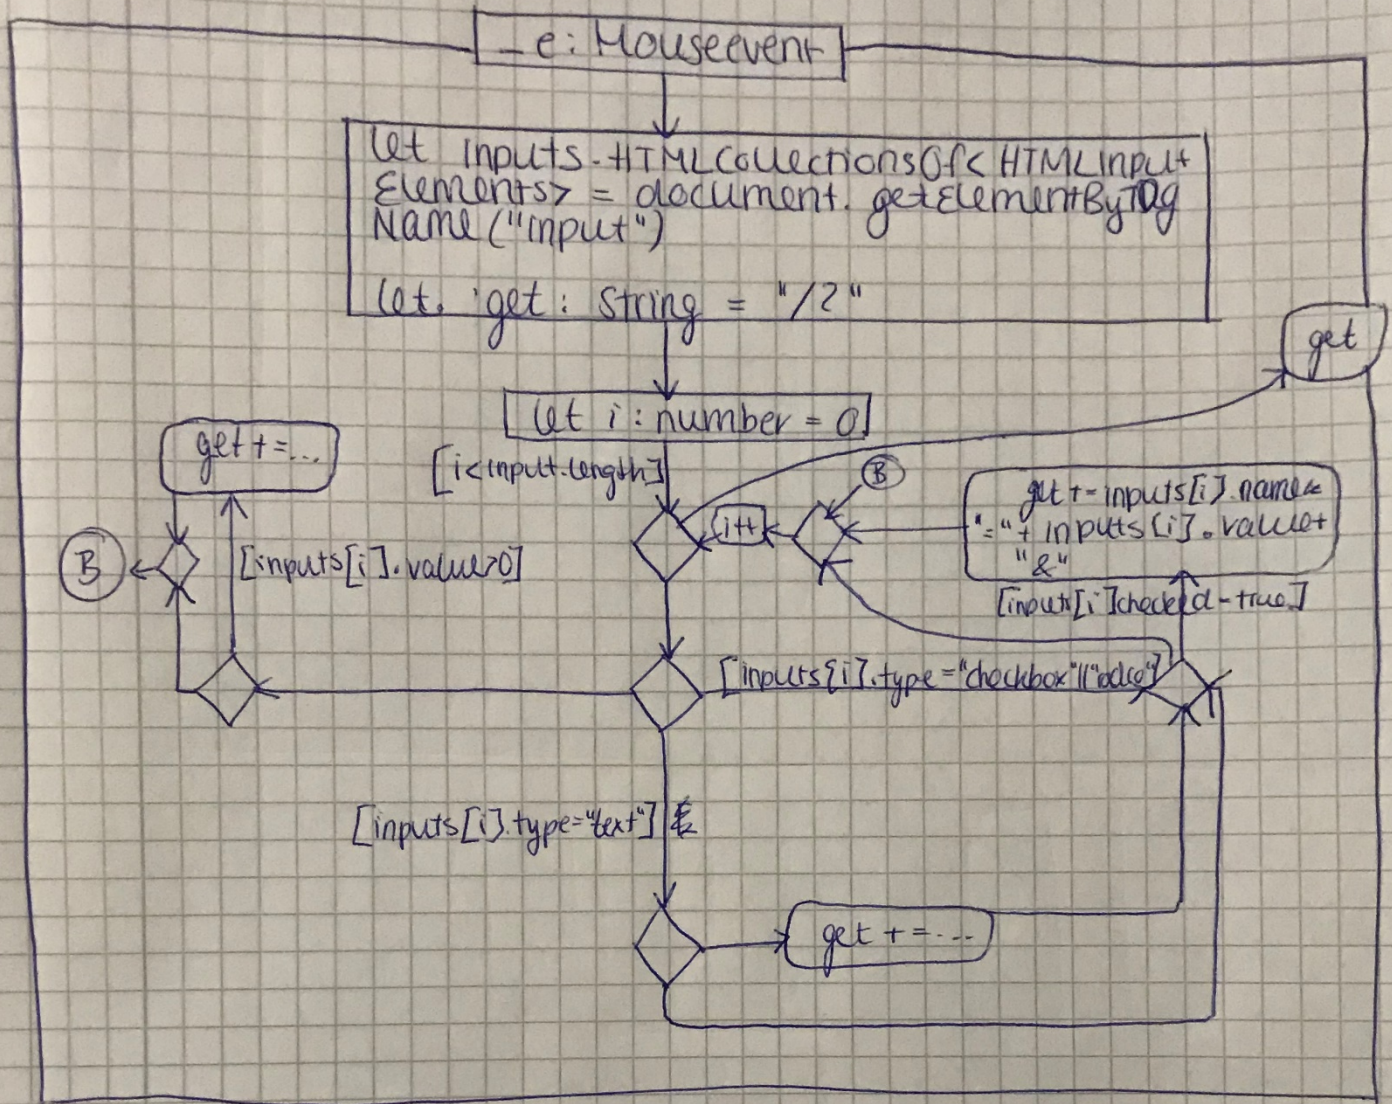 _e: Mouseevent
let inputs.HTMLCollectionsOf<HTMLInput
Elements> = document.getElementByTag
Name("input")
let get: String = "/?"
get
let i: number = 0
get +=...
[i<input.length]
B
get +=inputs[i].name+
"="+ inputs[i].value+
"&"
i++
B
[inputs[i].value>0]
[inputs[i]checked=true]
[inputs[i].type="checkbox"||"
[inputs[i].type="text"]
get +=...